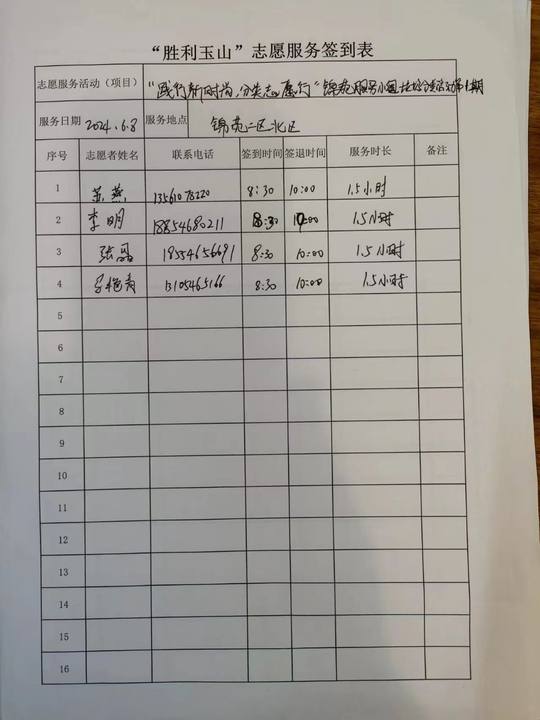 “胜利玉山”志愿服务签到表
志愿服务活动（项目） “践行新时尚,分类志愿行”锦苑
服务日期 2024.6.8 服务地点 锦苑二区北区
序号 志愿者姓名 联系电话 签到时间 签退时间 服务时长 备注
1 苏燕 13561078220 8:30 10:00 1.5小时
2 李明 18854680211 8:30 10:00 1.5小时
3 张磊 18554656691 8:30 10:00 1.5小时
4 13105465166 8:30 10:00 1.5小时
5
6
7
8
9
10
11
12
13
14
15
16